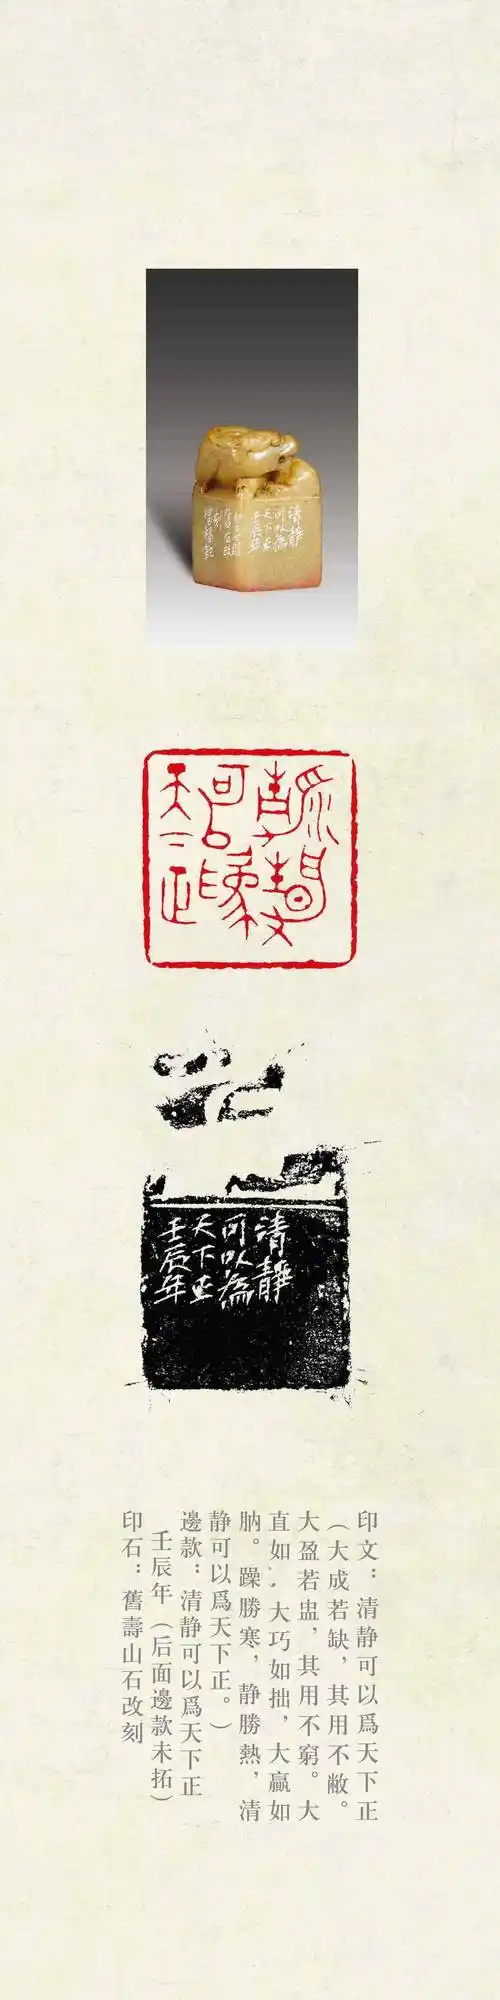 清靜
可以為
天下正
壬辰年
清靜
可以為
天下正
壬辰年
印文：清静可以爲天下正
（大成若缺，其用不敝。
大盈若盅，其用不窮。大
直如，大巧如拙，大贏如
肭。躁勝寒，静勝熱，清
静可以爲天下正。）
邊款：清静可以爲天下正
壬辰年（后面邊款未拓）
印石：舊壽山石改刻